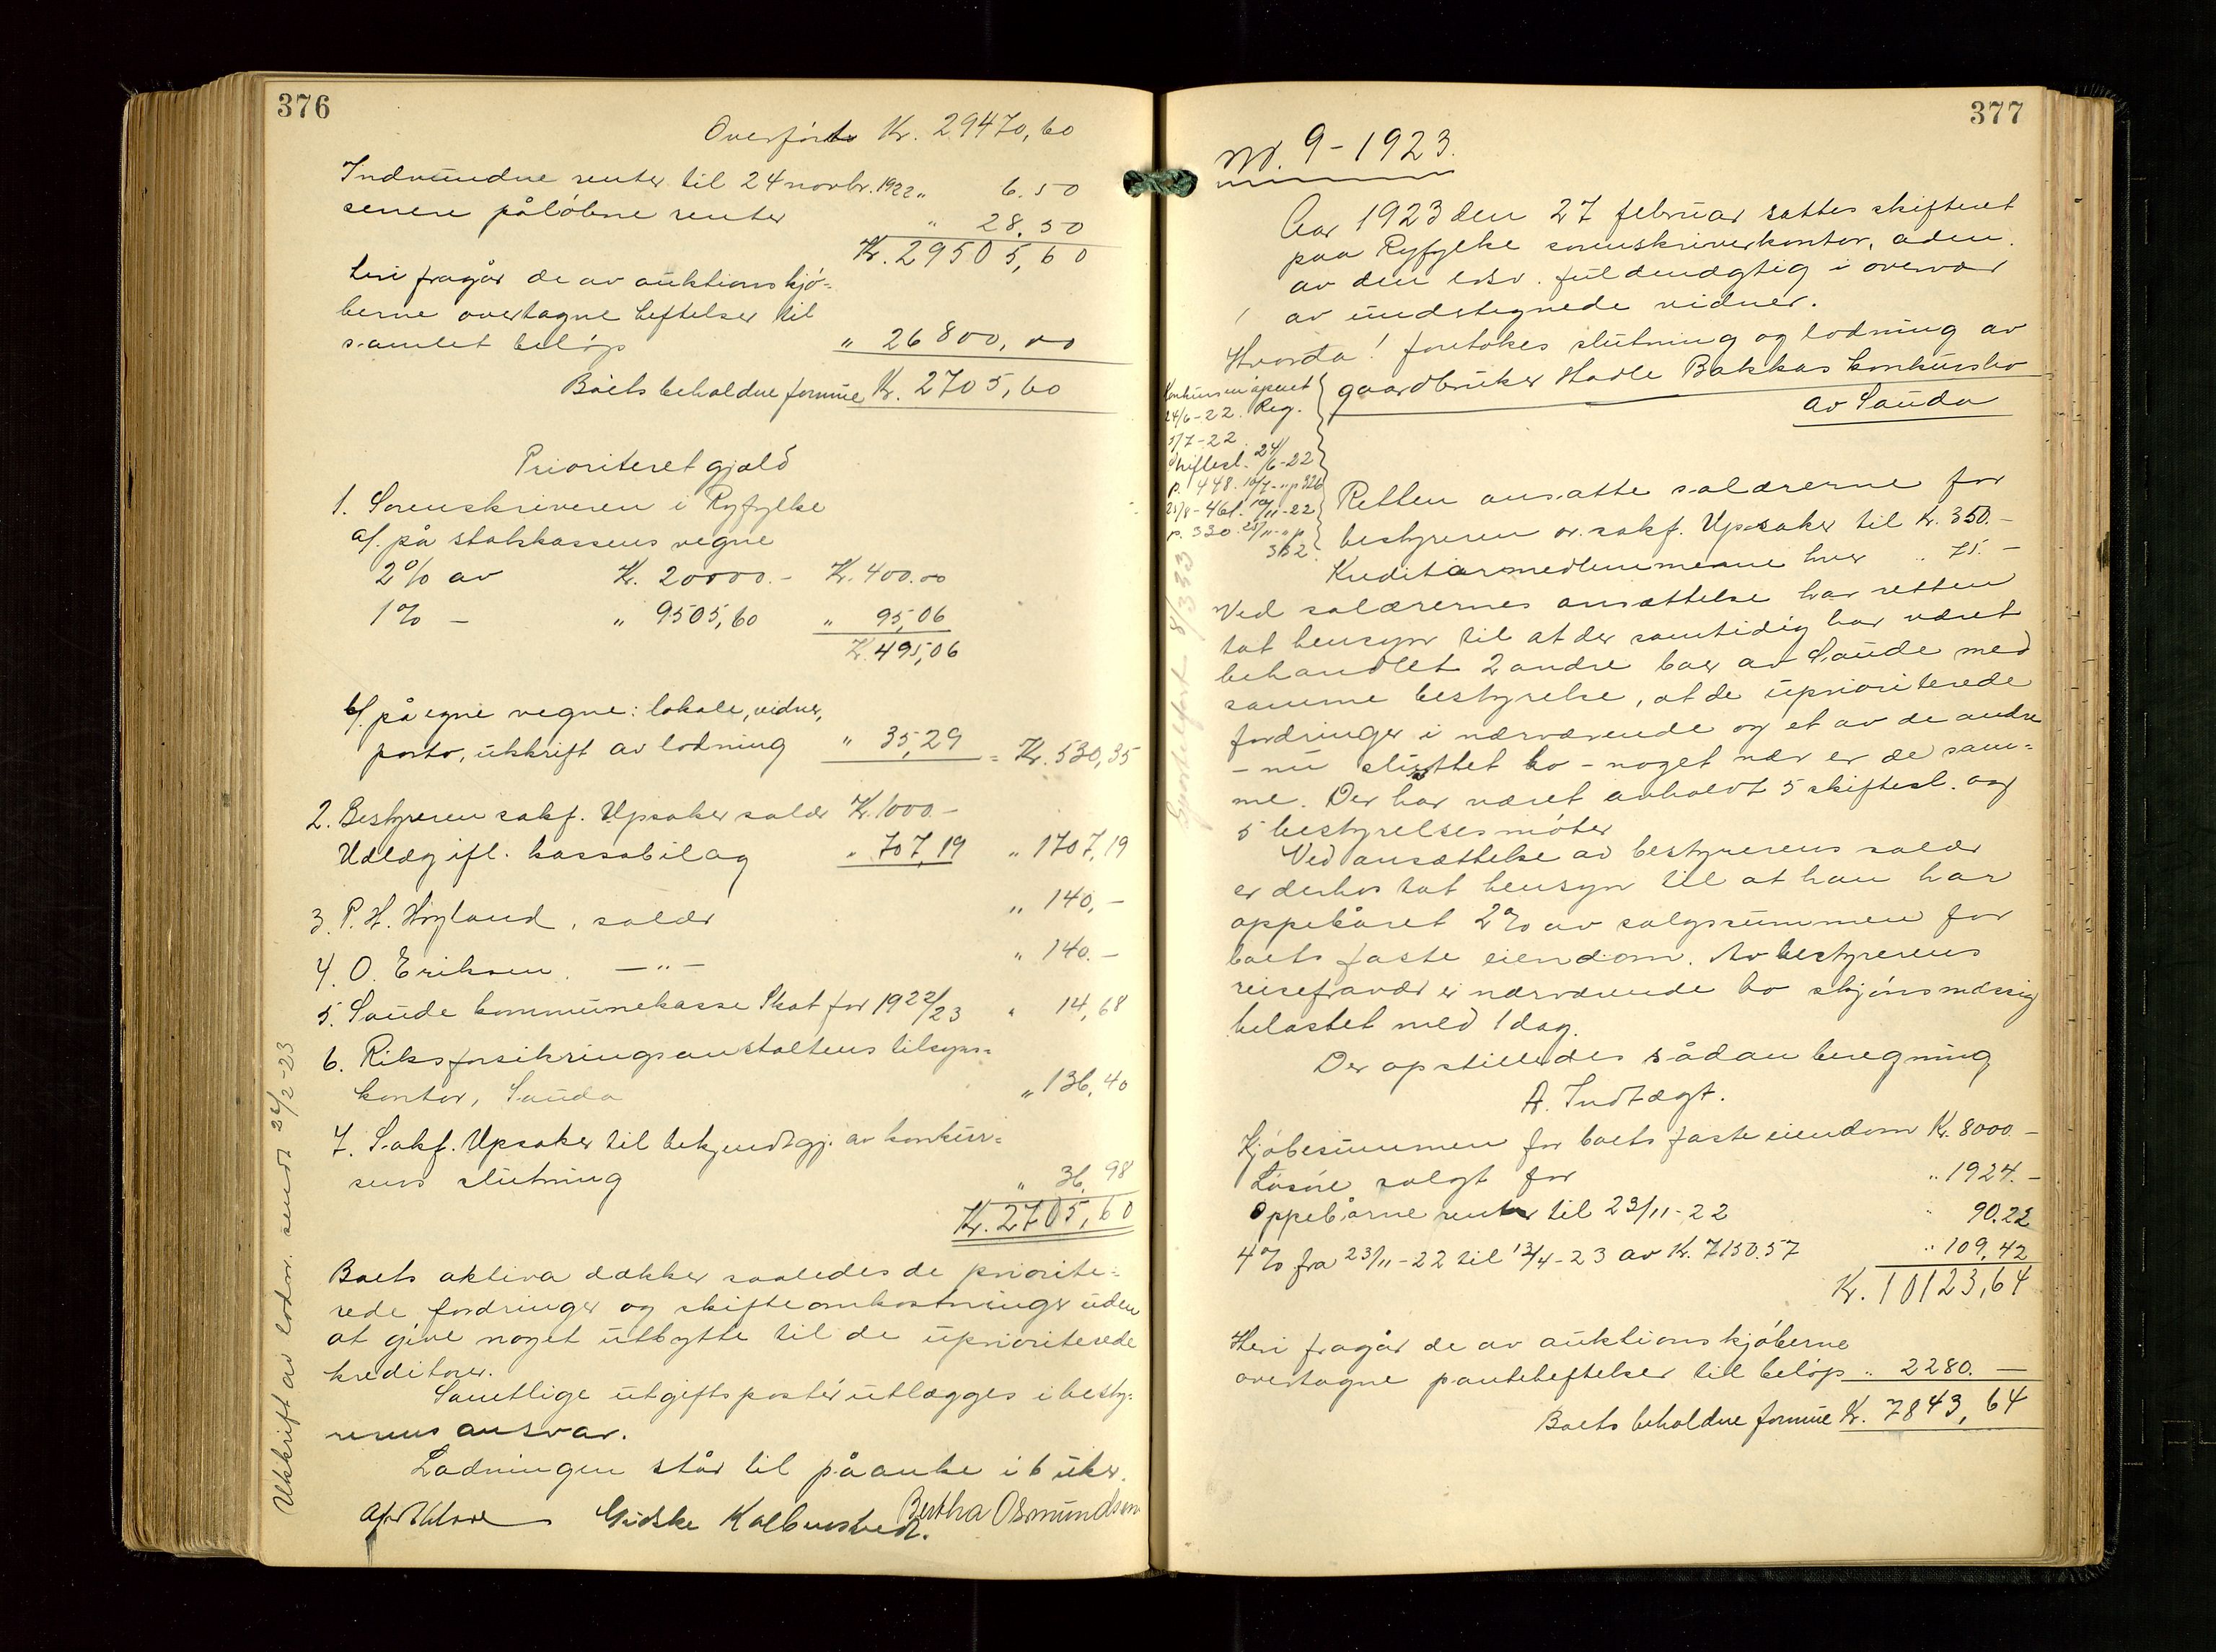 376
Overført Kr. 29470,60
Indvundne renter til 24 novbr. 1922 „ 6.50
senere påløbne renter „ 28.50
Kr. 29505,60
heri fragår de av auktionskjø-
berne overtagne heftelser til
samlet beløp „ 26800,00
Boets beholdne formue Kr. 2705,60
Prioriteret gjæld
1. Sorenskriveren i Ryfylke
a/. på statskassens vegne
2% av Kr. 20000.- Kr. 400.00
1% - „ 9505,60 „ 95,06
Kr. 495,06
b/. på egne vegne: lokale, vidner,
porto, utskrift av lodning „ 35,29 = Kr. 530,35
2. Bestyreren sakf. Upsaker salær Kr. 1000.-
Utlæg ifl. kassabilag „ 707,19 „ 1707,19
3. P. H. Høyland, salær „ 140,-
4. O. Eriksen. —„— „ 140.-
5. Saude kommunekasse Skat for 1922/23 „ 14,68
6. Riksforsikringsanstaltens tilsyns-
kontor, Sauda „ 136,40
7. Sakf. Upsaker til bekjendtgj. av konkur-
sens slutning „ 36,98
Kr. 2705,60
Boets aktiva dækker saaledes de priorite-
rede fordringer og skifteomkostninger uden
at give noget utbytte til de uprioriterede
kreditorer.
Samtlige utgiftsposter utlægges i besty-
rerens ansvar.
Lodningen står til påanke i 6 uker.
Gidske Kolbenstvedt. Bertha Osmundsen
Utskrift av lodn. sendt 27/2-23
377
Nr. 9-1923.
Aar 1923 den 27 februar sattes skifteret
paa Ryfylke sorenskriverkontor, adm.
av den edsv. fuldmægtig i overvær
av undertegnede vidner.
Hvorda! foretokes slutning og lodning av
gaardbruker Hadle Bakkas konkursbo
av Sauda
Konkursen åpnet
24/6-22. Reg.
5/7-22.
Skiftesl. 24/6-22
p. 448. 10/7-„ p 326
p. 330. 25/11-„ p
352.
Retten ansatte salærerne for
bestyreren or. sakf. Upsaker til Kr. 350.-
Kreditormedlemmerne hver „ 75.-
Ved salærernes ansættelse har retten
tat hensyn til at der samtidig har været
behandlet 2 andre boer av Saude med
samme bestyrelse, at de uprioriterede
fordringer i nærværende og et av de andre
- nu sluttet bo - noget nær er de sam-
me. Der har været avholdt 5 skiftesl. og
5 bestyrelsesmøter
Ved ansættelse av bestyrerens salær
er derhos tat hensyn til at han har
oppebåret 2% av salgssummen for
boets faste eiendom. Av bestyrerens
reisefravær er nærværende bo skjønsmæssig
belastet med 1 dag.
Der opstilledes sådan beregning
A. Indtægt.
Kjøbesummen for boets faste eiendom Kr. 8000.-
Løsøre solgt for „ 1924.-
Oppebårne renter til 23/11-22 „ 90.22
4% fra 23/11-22 til 13/4-23 av Kr. 7150.57 „ 109,42
Kr. 10123,64
Heri fragår de av auktionskjøberne
overtagne panteheftelser til beløp „ 2280.—
Boets beholdne formue Kr. 7843,64